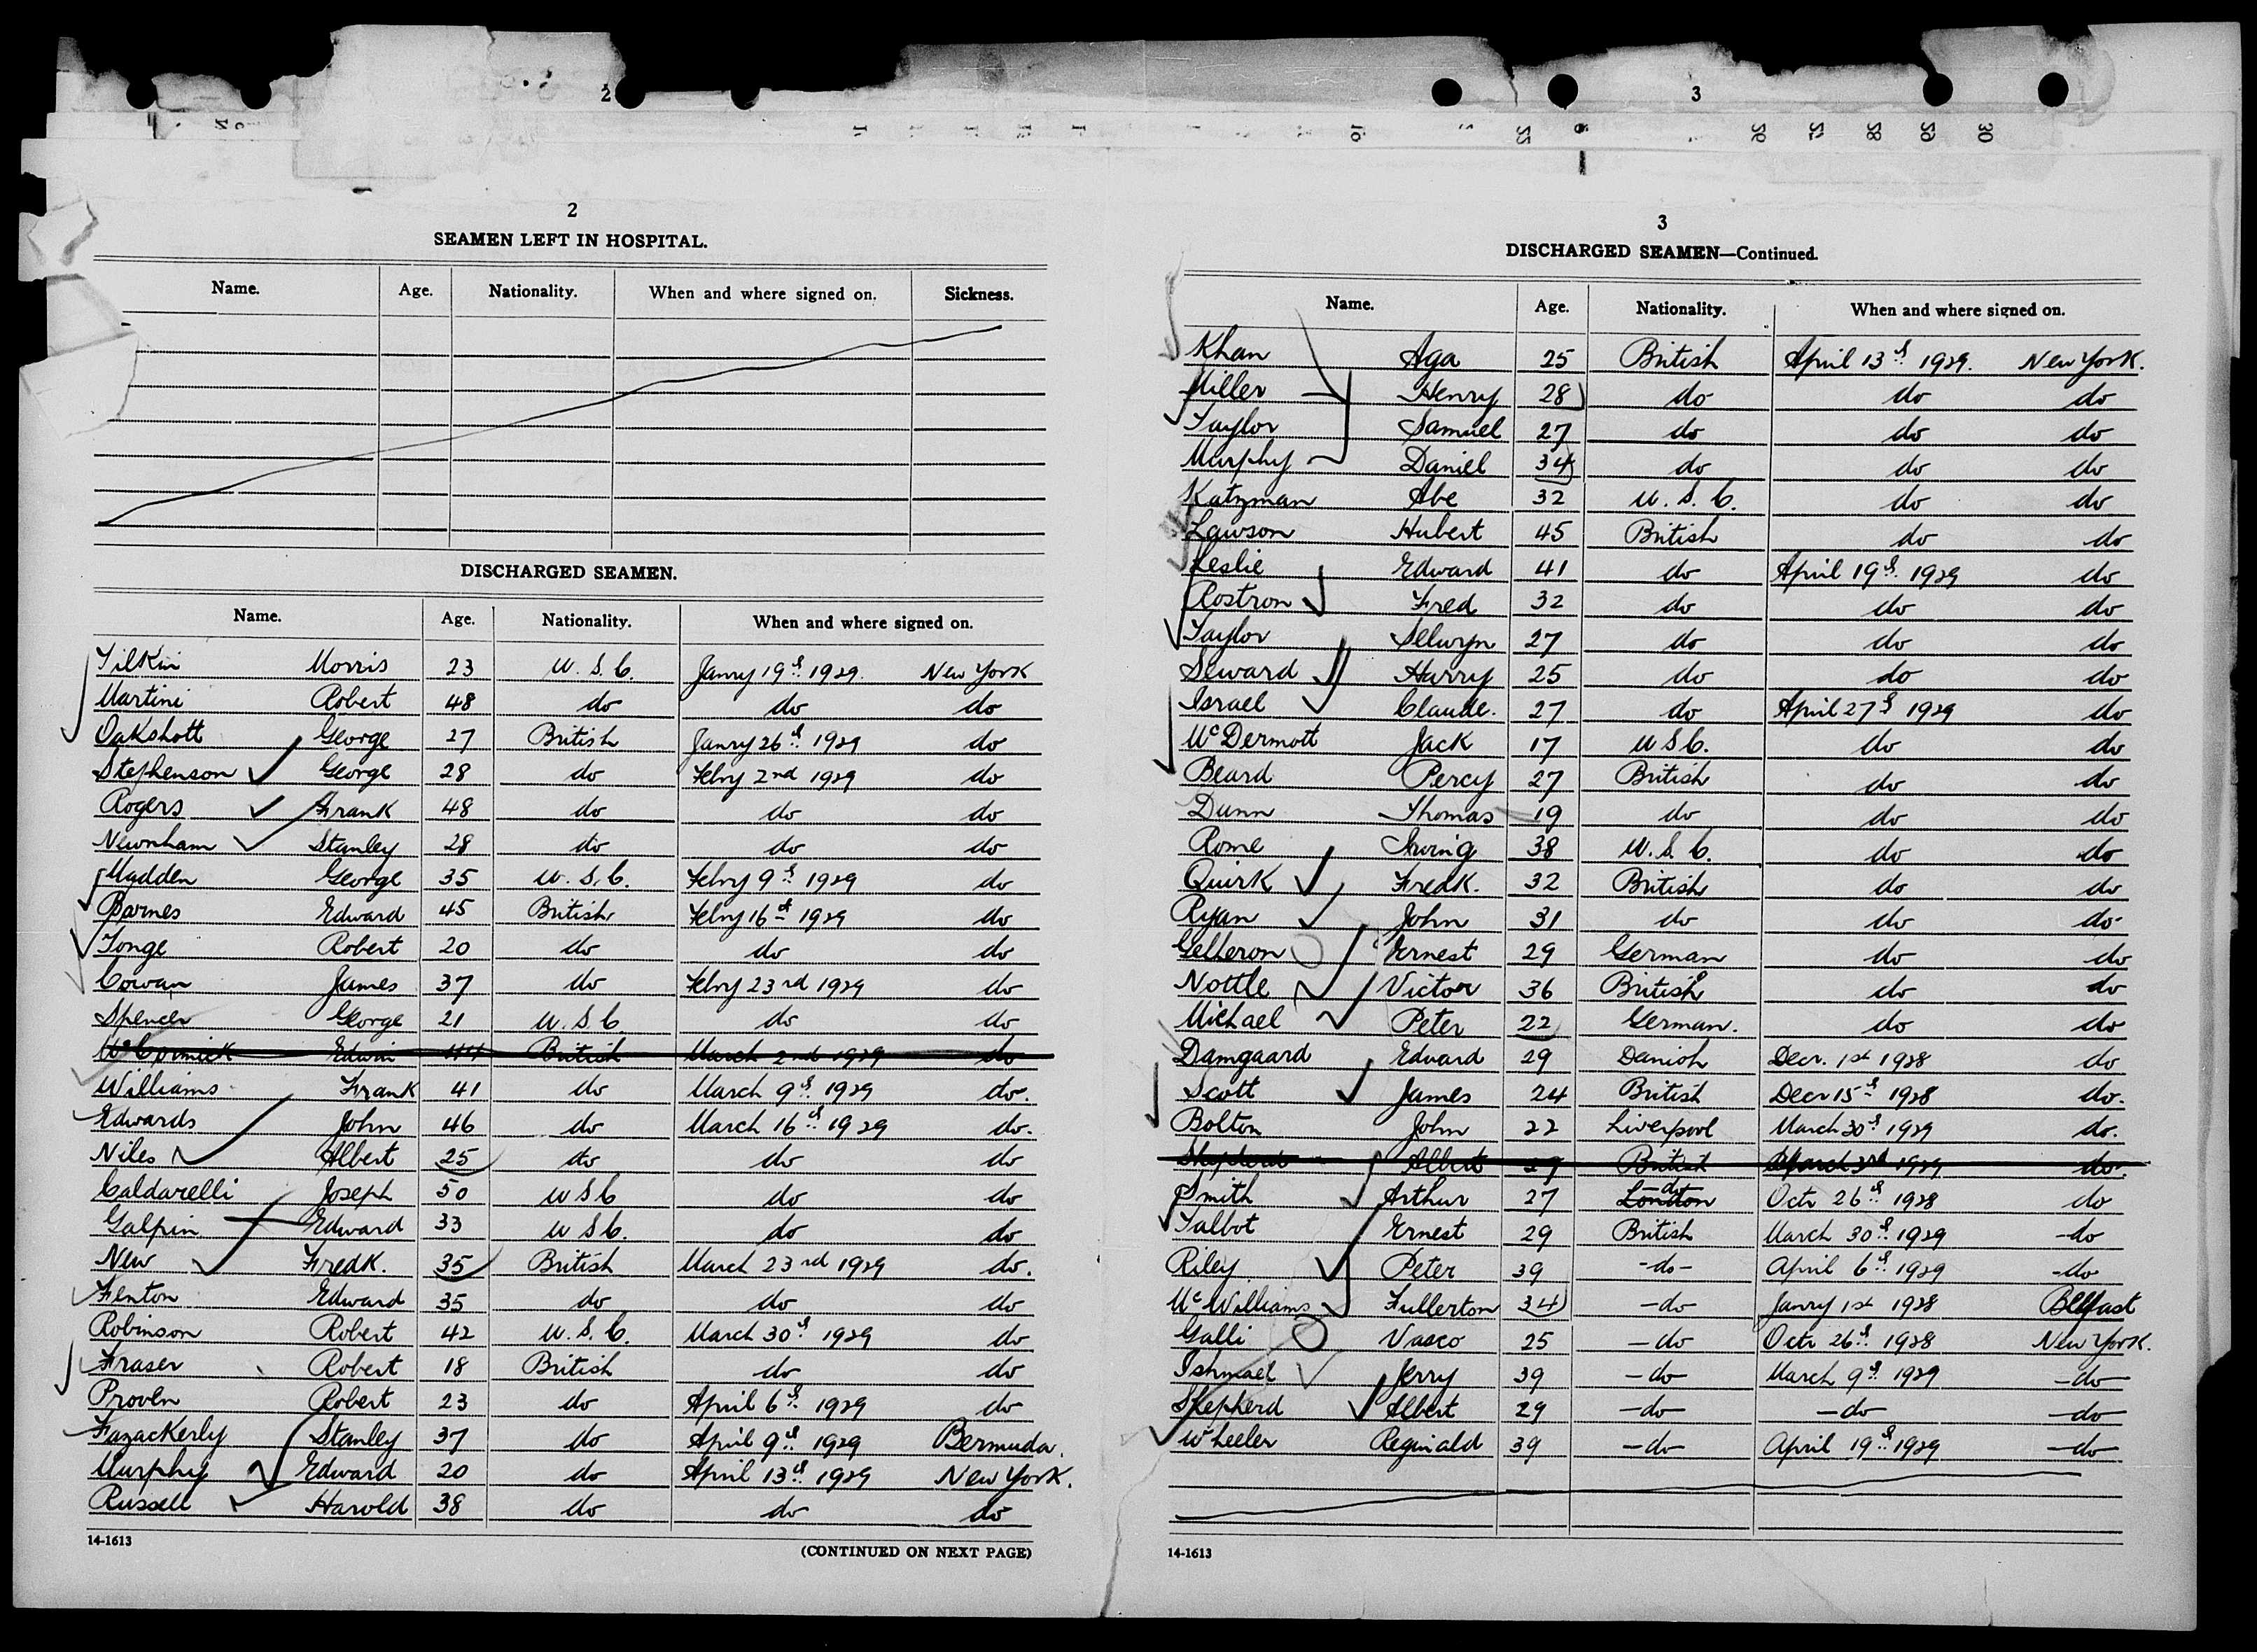 2
3
2
SEAMEN LEFT IN HOSPITAL.
Name. Age. Nationality. When and where signed on. Sickness.
DISCHARGED SEAMEN.
Name. Age. Nationality. When and where signed on.
Morris 23 U.S.C. Janry 19th 1929. New York
Martini Robert 48 do do do
Oakshott George 27 British Janry 26th 1929 do
Stephenson George 28 do Febry 2nd 1929 do
Rogers Frank 48 do do do
Newnham Stanley 28 do do do
Madden George 35 U.S.C. Febry 9th 1929 do
Barnes Edward 45 British Febry 16th 1929 do
Tonge Robert 20 do do do
Cowan James 37 do Febry 23rd 1929 do
Spencer George 21 U.S.C. do do
McCormick Edwin 44 British March 2nd 1929 do
Williams Frank 41 do March 9th 1929 do.
Edwards John 46 do March 16th 1929 do.
Niles Albert 25 do do do
Caldarelli Joseph 50 U S C do do
Galpin Edward 33 U S C. do do
New Fredk. 35 British March 23rd 1929 do.
Fenton Edward 35 do do do
Robinson Robert 42 U.S.C. March 30th 1929 do
Fraser Robert 18 British do do
Proven Robert 23 do April 6th 1929 do
Fazackerly Stanley 37 do April 9th 1929 Bermuda.
Murphy Edward 20 do April 13th 1929 New York.
Russell Harold 38 do do do
14-1613
(CONTINUED ON NEXT PAGE)
3
DISCHARGED SEAMEN—Continued.
Name. Age. Nationality. When and where signed on.
Khan Aga 25 British April 13th 1929. New York.
Miller Henry 28 do do do
Taylor Samuel 27 do do do
Murphy Daniel 34 do do do
Katzman Abe 32 U.S.C. do do
Lawson Hubert 45 British do do
Leslie Edward 41 do April 19th 1929 do
Rostron Fred 32 do do do
Taylor Selwyn 27 do do do
Seward Harry 25 do do do
Israel Claude. 27 do April 27th 1929 do
McDermott Jack 17 U S C. do do
Beard Percy 27 British do do
Dunn Thomas 19 do do do
Rome Irving 38 U.S.C. do do
Quirk Fredk. 32 British do do
Ryan John 31 do do do
Ernest 29 German do do
Nottle Victor 36 British do do
Michael Peter 22 German. do do
Damgaard Edvard 29 Danish Decr. 1st 1928 do
Scott James 24 British Decr 15th 1928 do.
Bolton John 22 Liverpool March 30th 1929 do.
Shepherd Albert 29 British March 1929 do.
Smith Arthur 27 London do Octr 26th 1928 do
Talbot Ernest 29 British March 30th 1929 -do
Riley Peter 39 -do- April 6th 1929 -do
McWilliams Fullerton 34 -do Janry 1st 1928 Belfast
Galli Vasco 25 -do Octr 26th 1928 New York.
Ishmael Jerry 39 -do- March 9th 1929 -do-
Shepherd Albert 29 -do- -do- -do-
Wheeler Reginald 39 -do- April 19th 1929 -do-
14-1613